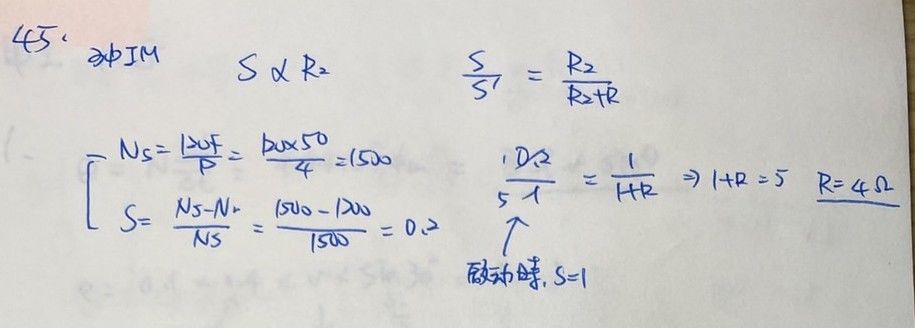 45.
3φIM
S ∝ R₂
S/S' = R₂/(R₂+R)
Ns = 120f/P = 120×50/4 = 1500
S = (Ns-Nr)/Ns = (1500-1200)/1500 = 0.2
1 0.2/5 1 = 1/(1+R) ⇒ 1+R=5 R=4Ω
啟动時, S=1